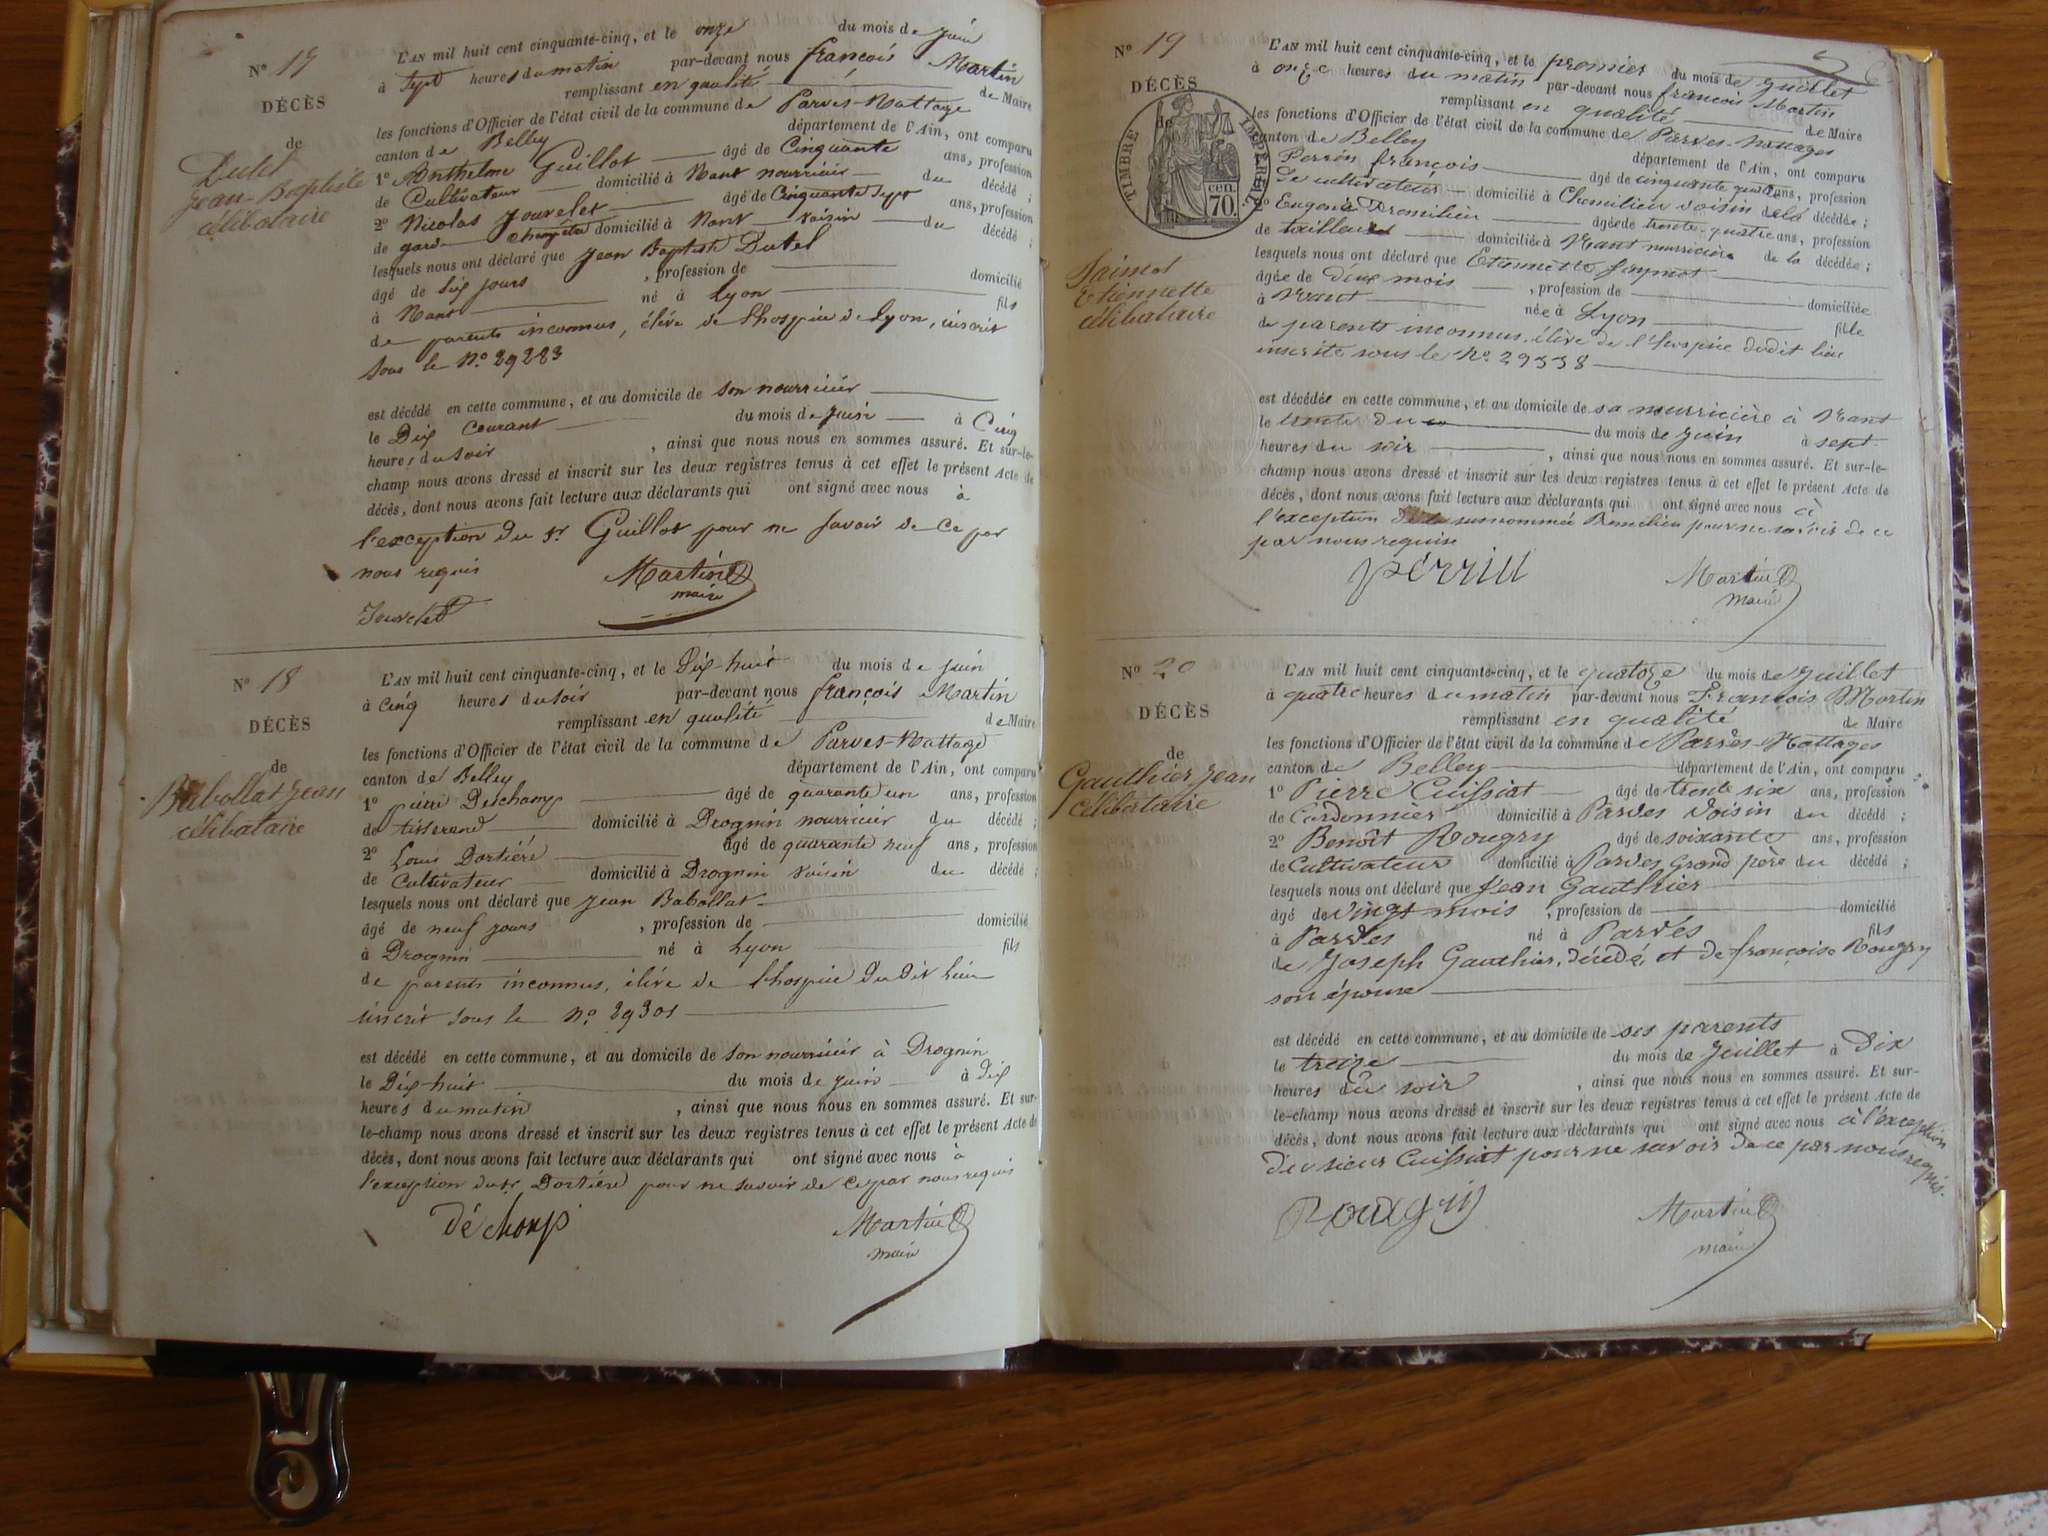 N° 17
DÉCÈS
de
Dutel
Jean-Baptiste
célibataire
L'AN mil huit cent cinquante-cinq, et le onze du mois de juin
à sept heures du matin par-devant nous françois Martin
remplissant en qualité de Maire
les fonctions d'Officier de l'état civil de la commune de Parves-Nattage
canton de Belley département de l'Ain, ont comparu
1° Anthelme Guillot âgé de Cinquante ans, profession
de Cultivateur domicilié à Nant nourricier du décédé ;
2° Nicolas Jouvelet âgé de Cinquante sept ans, profession
de garde champêtre domicilié à Nant voisin du décédé ;
lesquels nous ont déclaré que Jean Baptiste Dutel
âgé de Six jours , profession de domicilié
à Nant né à Lyon fils
de parents inconnus, élève de l'hospice de Lyon, inscrit
sous le N° 29283
est décédé en cette commune, et au domicile de son nourricier
le Dix courant du mois de juin à Cinq
heures du soir , ainsi que nous nous en sommes assuré. Et sur-le-
champ nous avons dressé et inscrit sur les deux registres tenus à cet effet le présent Acte de
décès, dont nous avons fait lecture aux déclarants qui ont signé avec nous à
l'exception du Sr Guillot pour ne savoir de ce par
nous requis
Jouvelet
Martin
maire
N° 18
DÉCÈS
de
Babollat Jean
célibataire
L'AN mil huit cent cinquante-cinq, et le Dix-huit du mois de juin
à cinq heures du soir par-devant nous françois Martin
remplissant en qualité de Maire
les fonctions d'Officier de l'état civil de la commune de Parves-Nattage
canton de Belley département de l'Ain, ont comparu
1° pierre Deschamps âgé de quarante un ans, profession
de tisserand domicilié à Drognin nourricier du décédé ;
2° Louis Dortière âgé de quarante neuf ans, profession
de Cultivateur domicilié à Drognin voisin du décédé ;
lesquels nous ont déclaré que Jean Babollat
âgé de neuf jours , profession de domicilié
à Drognin né à Lyon fils
de parents inconnus, élève de l'hospice du dit lieu
inscrit sous le N° 29301
est décédé en cette commune, et au domicile de son nourricier à Drognin
le Dix-huit du mois de juin à dix
heures du matin , ainsi que nous nous en sommes assuré. Et sur-
le-champ nous avons dressé et inscrit sur les deux registres tenus à cet effet le présent Acte de
décès, dont nous avons fait lecture aux déclarants qui ont signé avec nous à
l'exception du Sr Dortière pour ne savoir de ce par nous requis
déchamp
Martin
maire
N° 19
DÉCÈS
de
TIMBRE IMPÉRIAL
70 cen.
Etiennette
célibataire
L'AN mil huit cent cinquante-cinq, et le premier du mois de juillet
à onze heures du matin par-devant nous françois Martin
remplissant en qualité de Maire
les fonctions d'Officier de l'état civil de la commune de Parves-Nattages
canton de Belley département de l'Ain, ont comparu
Perrin françois âgé de cinquante ans, profession
de cultivateur domicilié à Chemilieu voisin de la décédée ;
2° Eugenie âgée de trente-quatre ans, profession
de domiciliée à Nant nourricière de la décédée ;
lesquels nous ont déclaré que Etiennette
âgée de deux mois , profession de domiciliée
à Nant née à Lyon fille
de parents inconnus, élève de l'hospice dudit lieu
inscrite sous le N° 29338
est décédée en cette commune, et au domicile de sa nourricière à Nant
le trente du du mois de juin à sept
heures du soir , ainsi que nous nous en sommes assuré. Et sur-le-
champ nous avons dressé et inscrit sur les deux registres tenus à cet effet le présent Acte de
décès, dont nous avons fait lecture aux déclarants qui ont signé avec nous à
l'exception de la surnommée pour ne savoir de ce
par nous requise
Martin
maire
N° 20
DÉCÈS
de
Gauthier Jean
célibataire
L'AN mil huit cent cinquante-cinq, et le quatorze du mois de juillet
à quatre heures du matin par-devant nous François Martin
remplissant en qualité de Maire
les fonctions d'Officier de l'état civil de la commune de Parves-Nattages
canton de Belley département de l'Ain, ont comparu :
1° Pierre Cuissiat âgé de trente six ans, profession
de Cordonnier domicilié à Parves voisin du décédé ;
2° Benoît Rougry âgé de soixante ans, profession
de Cultivateur domicilié à Parves Grand père du décédé ;
lesquels nous ont déclaré que Jean Gauthier
âgé de vingt mois , profession de domicilié
à Parves né à Parves fils
de Joseph Gauthier, décédé, et de françoise Rougry
son épouse
est décédé en cette commune, et au domicile de ses parents
le treize du mois de juillet à dix
heures du soir , ainsi que nous nous en sommes assuré. Et sur-
le-champ nous avons dressé et inscrit sur les deux registres tenus à cet effet le présent Acte de
décès, dont nous avons fait lecture aux déclarants qui ont signé avec nous à l'exception
du sieur Cuissiat pour ne savoir de ce par nous requis.
Martin
maire